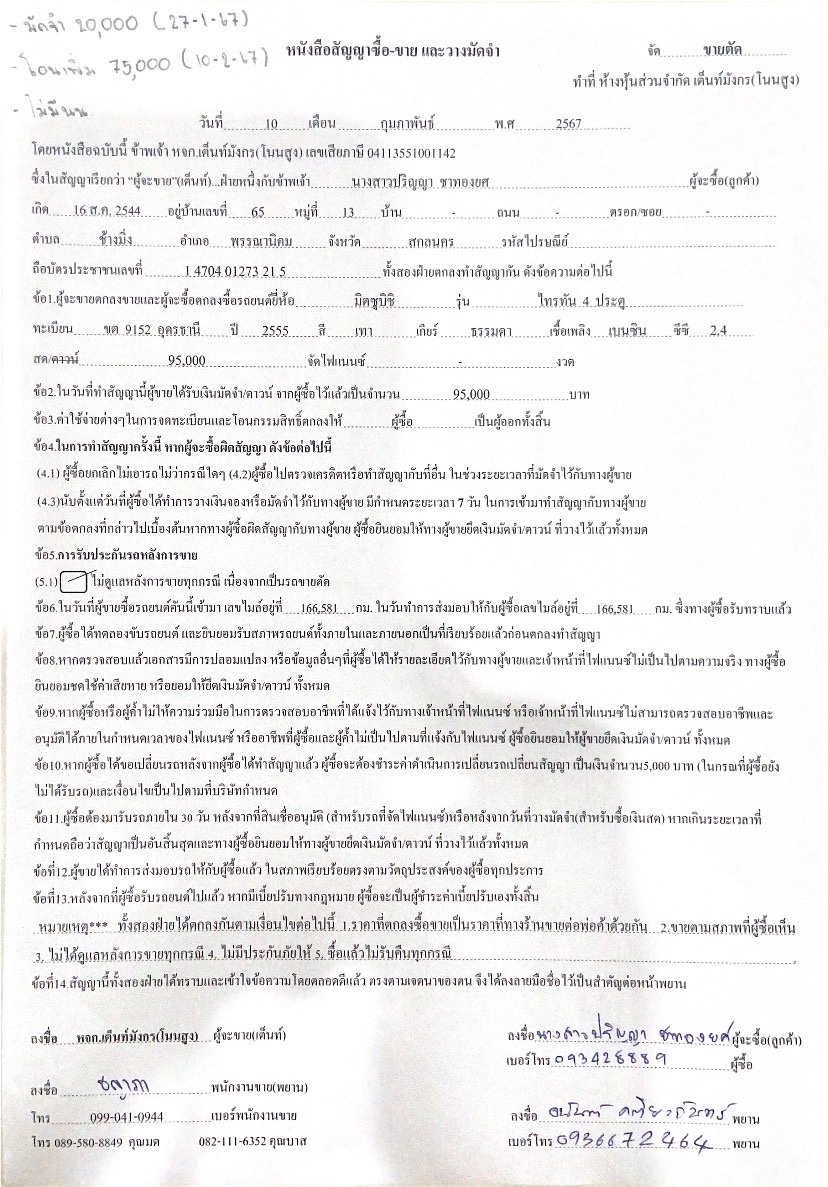 - มัดจำ 20,000 (27-1-67)
- โอนเพิ่ม 75,000 (10-2-67)
- ไม่มีนน
หนังสือสัญญาซื้อ-ขาย และวางมัดจำ จัด ขายตัด
ทำที่ ห้างหุ้นส่วนจำกัด เต็นท์มังกร(โนนสูง)
วันที่ 10 เดือน กุมภาพันธ์ พ.ศ 2567
โดยหนังสือฉบับนี้ ข้าพเจ้า หจก.เต็นท์มังกร(โนนสูง) เลขเสียภาษี 04113551001142
ซึ่งในสัญญาเรียกว่า "ผู้จะขาย"(เต็นท์)...ฝ่ายหนึ่งกับข้าพเจ้า นางสาวปริญญา ชาทองยศ ผู้จะซื้อ(ลูกค้า)
เกิด 16 ส.ค. 2544 อยู่บ้านเลขที่ 65 หมู่ที่ 13 บ้าน - ถนน - ตรอก/ซอย -
ตำบล ช้างมิ่ง อำเภอ พรรณานิคม จังหวัด สกลนคร รหัสไปรษณีย์
ถือบัตรประชาชนเลขที่ 1 4704 01273 21 5 ทั้งสองฝ่ายตกลงทำสัญญากัน ดังข้อความต่อไปนี้
ข้อ1.ผู้จะขายตกลงขายและผู้จะซื้อตกลงซื้อรถยนต์ยี่ห้อ มิตซูบิชิ รุ่น ไทรทัน 4 ประตู
ทะเบียน ขต 9152 อุดรธานี ปี 2555 สี เทา เกียร์ ธรรมดา เชื้อเพลิง เบนซิน ซีซี 2.4
สด/ดาวน์ 95,000 จัดไฟแนนซ์ - งวด
ข้อ2.ในวันที่ทำสัญญานี้ผู้ขายได้รับเงินมัดจำ/ดาวน์ จากผู้ซื้อไว้แล้วเป็นจำนวน 95,000 บาท
ข้อ3.ค่าใช้จ่ายต่างๆในการจดทะเบียนและโอนกรรมสิทธิ์ตกลงให้ ผู้ซื้อ เป็นผู้ออกทั้งสิ้น
ข้อ4.ในการทำสัญญาครั้งนี้ หากผู้จะซื้อผิดสัญญา ดังข้อต่อไปนี้
(4.1) ผู้ซื้อยกเลิกไม่เอารถไม่ว่ากรณีใดๆ (4.2)ผู้ซื้อไปตรวจเครดิตหรือทำสัญญากับที่อื่น ในช่วงระยะเวลาที่มัดจำไว้กับทางผู้ขาย
(4.3)นับตั้งแต่วันที่ผู้ซื้อได้ทำการวางเงินจองหรือมัดจำไว้กับทางผู้ขาย มีกำหนดระยะเวลา 7 วัน ในการเข้ามาทำสัญญากับทางผู้ขาย
ตามข้อตกลงที่กล่าวไปเบื้องต้นหากทางผู้ซื้อผิดสัญญากับทางผู้ขาย ผู้ซื้อยินยอมให้ทางผู้ขายยึดเงินมัดจำ/ดาวน์ ที่วางไว้แล้วทั้งหมด
ข้อ5.การรับประกันรถหลังการขาย
(5.1) ไม่ดูแลหลังการขายทุกกรณี เนื่องจากเป็นรถขายตัด
ข้อ6.ในวันที่ผู้ขายซื้อรถยนต์คันนี้เข้ามา เลขไมล์อยู่ที่ 166,581 กม. ในวันทำการส่งมอบให้กับผู้ซื้อเลขไมล์อยู่ที่ 166,581 กม. ซึ่งทางผู้ซื้อรับทราบแล้ว
ข้อ7.ผู้ซื้อได้ทดลองขับรถยนต์ และยินยอมรับสภาพรถยนต์ทั้งภายในและภายนอกเป็นที่เรียบร้อยแล้วก่อนตกลงทำสัญญา
ข้อ8.หากตรวจสอบแล้วเอกสารมีการปลอมแปลง หรือข้อมูลอื่นๆที่ผู้ซื้อได้ให้รายละเอียดไว้กับทางผู้ขายและเจ้าหน้าที่ไฟแนนซ์ไม่เป็นไปตามความจริง ทางผู้ซื้อ
ยินยอมชดใช้ค่าเสียหาย หรือยอมให้ยึดเงินมัดจำ/ดาวน์ ทั้งหมด
ข้อ9.หากผู้ซื้อหรือผู้ค้ำไม่ให้ความร่วมมือในการตรวจสอบอาชีพที่ได้แจ้งไว้กับทางเจ้าหน้าที่ไฟแนนซ์ หรือเจ้าหน้าที่ไฟแนนซ์ไม่สามารถตรวจสอบอาชีพและ
อนุมัติได้ภายในกำหนดเวลาของไฟแนนซ์ หรืออาชีพที่ผู้ซื้อและผู้ค้ำไม่เป็นไปตามที่แจ้งกับไฟแนนซ์ ผู้ซื้อยินยอมให้ผู้ขายยึดเงินมัดจำ/ดาวน์ ทั้งหมด
ข้อ10.หากผู้ซื้อได้ขอเปลี่ยนรถหลังจากผู้ซื้อได้ทำสัญญาแล้ว ผู้ซื้อจะต้องชำระค่าดำเนินการเปลี่ยนรถเปลี่ยนสัญญา เป็นเงินจำนวน5,000 บาท (ในกรณีที่ผู้ซื้อยัง
ไม่ได้รับรถ)และเงื่อนไขเป็นไปตามที่บริษัทกำหนด
ข้อ11.ผู้ซื้อต้องมารับรถภายใน 30 วัน หลังจากที่สินเชื่ออนุมัติ (สำหรับรถที่จัดไฟแนนซ์)หรือหลังจากวันที่วางมัดจำ(สำหรับซื้อเงินสด) หากเกินระยะเวลาที่
กำหนดถือว่าสัญญาเป็นอันสิ้นสุดและทางผู้ซื้อยินยอมให้ทางผู้ขายยึดเงินมัดจำ/ดาวน์ ที่วางไว้แล้วทั้งหมด
ข้อที่12.ผู้ขายได้ทำการส่งมอบรถให้กับผู้ซื้อแล้ว ในสภาพเรียบร้อยตรงตามวัตถุประสงค์ของผู้ซื้อทุกประการ
ข้อที่13.หลังจากที่ผู้ซื้อรับรถยนต์ไปแล้ว หากมีเบี้ยปรับทางกฎหมาย ผู้ซื้อจะเป็นผู้ชำระค่าเบี้ยปรับเองทั้งสิ้น
หมายเหตุ*** ทั้งสองฝ่ายได้ตกลงกันตามเงื่อนไขต่อไปนี้ 1.ราคาที่ตกลงซื้อขายเป็นราคาที่ทางร้านขายต่อพ่อค้าด้วยกัน 2.ขายตามสภาพที่ผู้ซื้อเห็น
3. ไม่ได้ดูแลหลังการขายทุกกรณี 4. ไม่มีประกันภัยให้ 5. ซื้อแล้วไม่รับคืนทุกกรณี
ข้อที่14.สัญญานี้ทั้งสองฝ่ายได้ทราบและเข้าใจข้อความโดยตลอดดีแล้ว ตรงตามเจตนาของตน จึงได้ลงลายมือชื่อไว้เป็นสำคัญต่อหน้าพยาน
ลงชื่อ หจก.เต็นท์มังกร(โนนสูง) ผู้จะขาย(เต็นท์) ลงชื่อ นางสาวปริญญา ชาทองยศ ผู้จะซื้อ(ลูกค้า)
เบอร์โทร 093428889 ผู้ซื้อ
ลงชื่อ ชลาภา พนักงานขาย(พยาน)
โทร 099-041-0944 เบอร์พนักงานขาย ลงชื่อ อนันท์ พยาน
โทร 089-580-8849 คุณมด 082-111-6352 คุณบาส เบอร์โทร 0936672464 พยาน